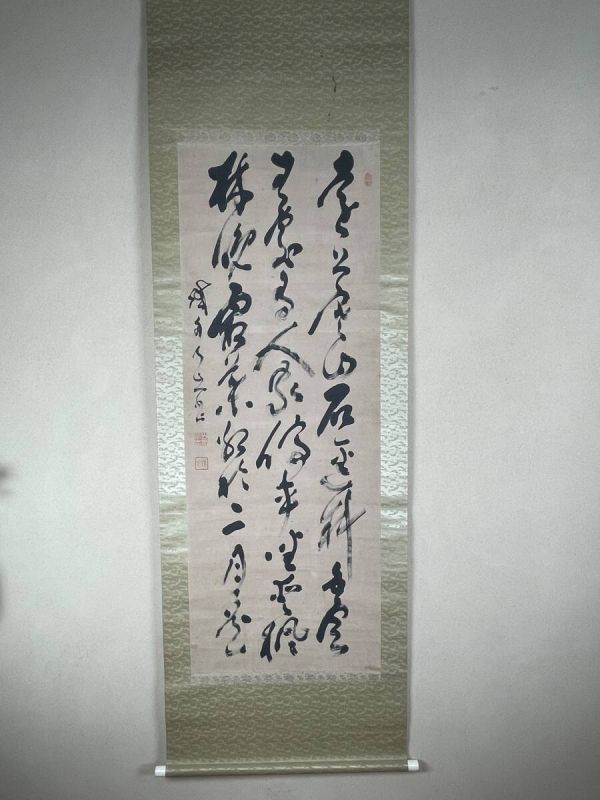 遠上寒山石逕斜白雲
生處有人家停車坐愛楓
林晚霜葉紅於二月花